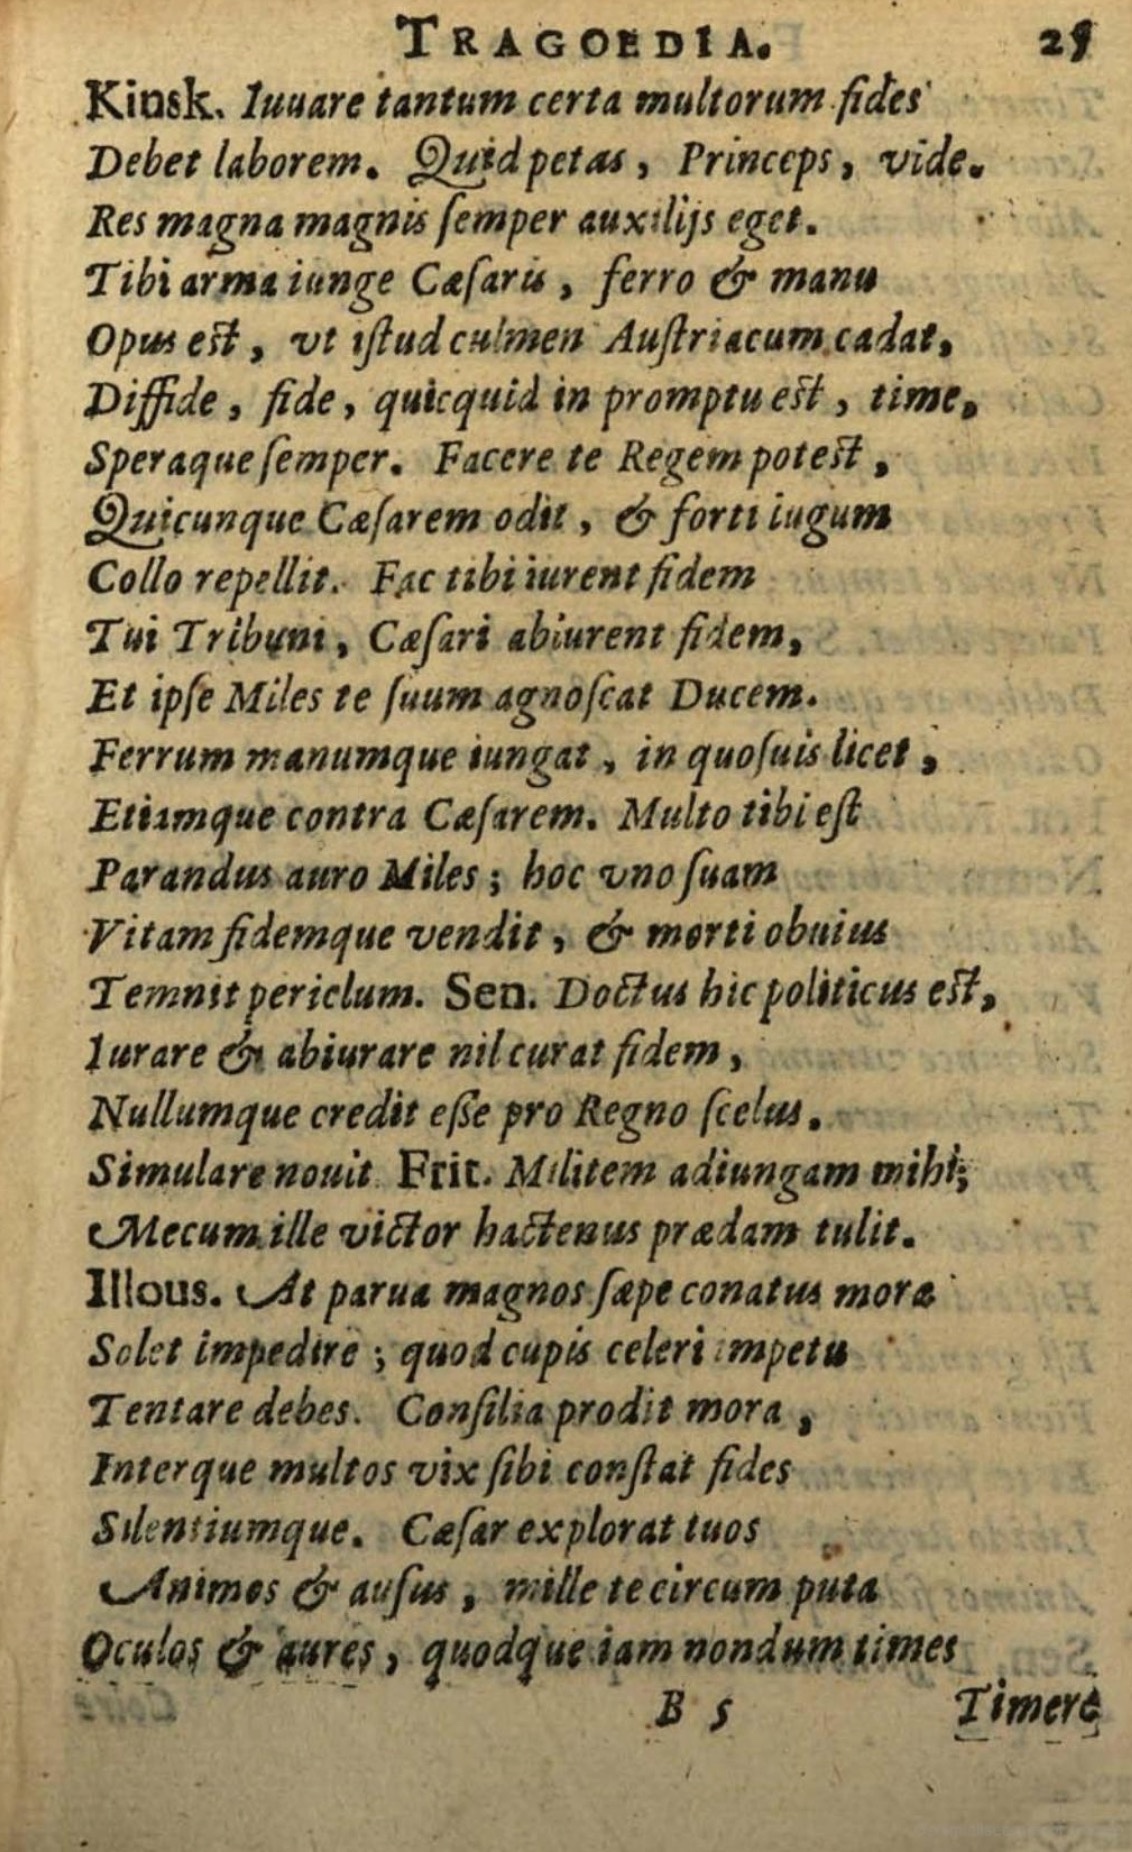 TRAGOEDIA. 25
Kinsk. Iuuare tantum certa multorum fides
Debet laborem. Quid petas, Princeps, vide.
Res magna magnis ſemper auxilijs eget.
Tibi arma iunge Cæſaris, ferro & manu
Opus eſt, vt iſtud culmen Auſtriacum cadat,
Diffide, fide, quicquid in promptu eſt, time,
Speraque ſemper. Facere te Regem poteſt,
Quicunque Cæſarem odit, & forti iugum
Collo repellit. Fac tibi iurent fidem
Tui Tribuni, Cæſari abiurent fidem,
Et ipſe Miles te ſuum agnoſcat Ducem.
Ferrum manumque iungat, in quoſuis licet,
Etiamque contra Cæſarem. Multo tibi eſt
Parandus auro Miles; hoc vno ſuam
Vitam fidemque vendit, & morti obuius
Temnit periclum. Sen. Doctus hic politicus eſt,
Iurare & abiurare nil curat fidem,
Nullumque credit eſſe pro Regno ſcelus.
Simulare nouit Frit. Militem adiungam mihi;
Mecum ille victor hactenus prædam tulit.
Illous. At parua magnos ſæpe conatus mora
Solet impedire; quod cupis celeri impetu
Tentare debes. Conſilia prodit mora,
Interque multos vix ſibi conſtat fides
Silentiumque. Cæſar explorat tuos
Animos & auſus, mille te circum puta
Oculos & aures, quodque iam nondum times
B 5 Timere